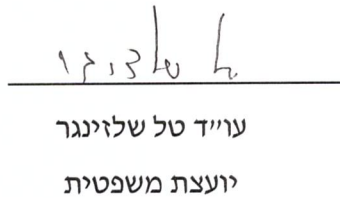 טל שלזינגר
עו״ד טל שלזינגר
יועצת משפטית